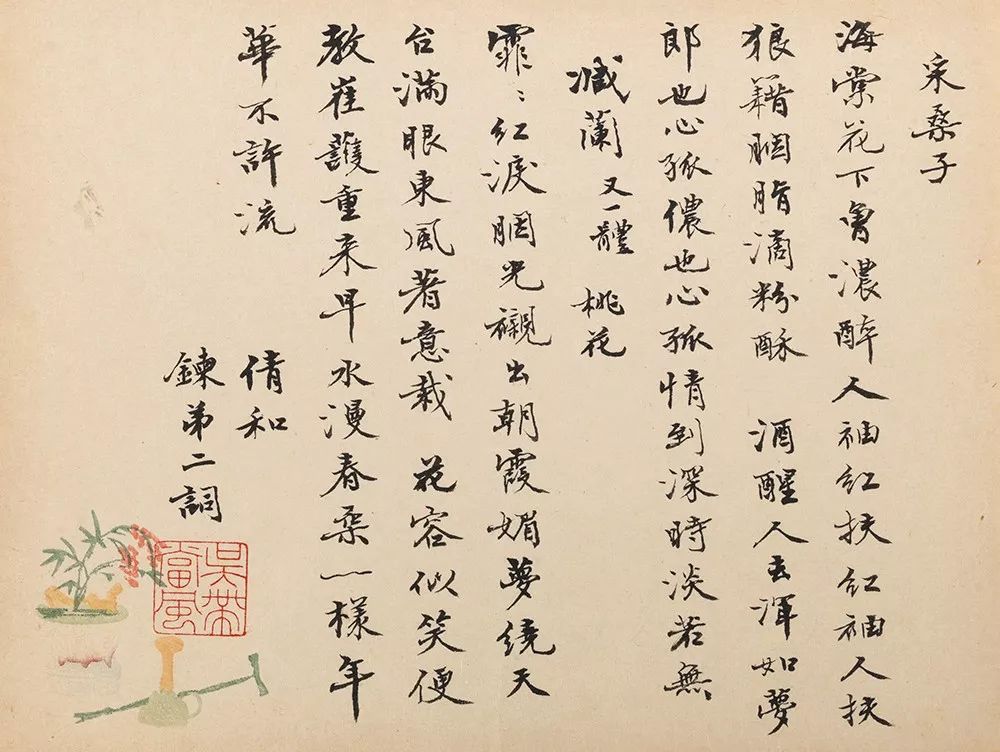 采桑子
海棠花下曾濃醉人袖紅扶紅袖人扶
狼籍胭脂滴粉酥 酒醒人去渾如夢
郎也心孤儂也心孤情到深時淡若無
減蘭 又一體 桃花
霏〻紅淚胭光襯出朝霞媚夢繞天
台滿眼東風著意栽 花容似笑便
教崔護重来早水漫春柔一樣年
華不許流
倩和
鍊弟二詞
吳帶當風